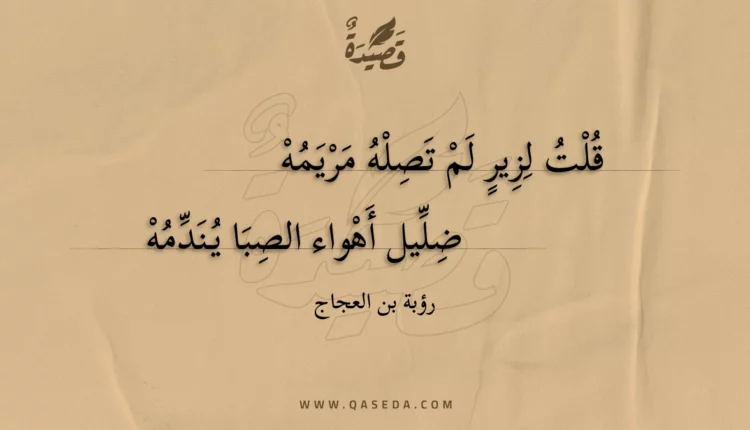 قَصِيدَةٌ
قُلْتُ لِزِيرٍ لَمْ تَصِلْهُ مَرْيَمُهْ
ضِلِّيل أَهْواء الصِبَا يُنَدِّمُهْ
رؤبة بن العجاج
WWW.QASEDA.COM